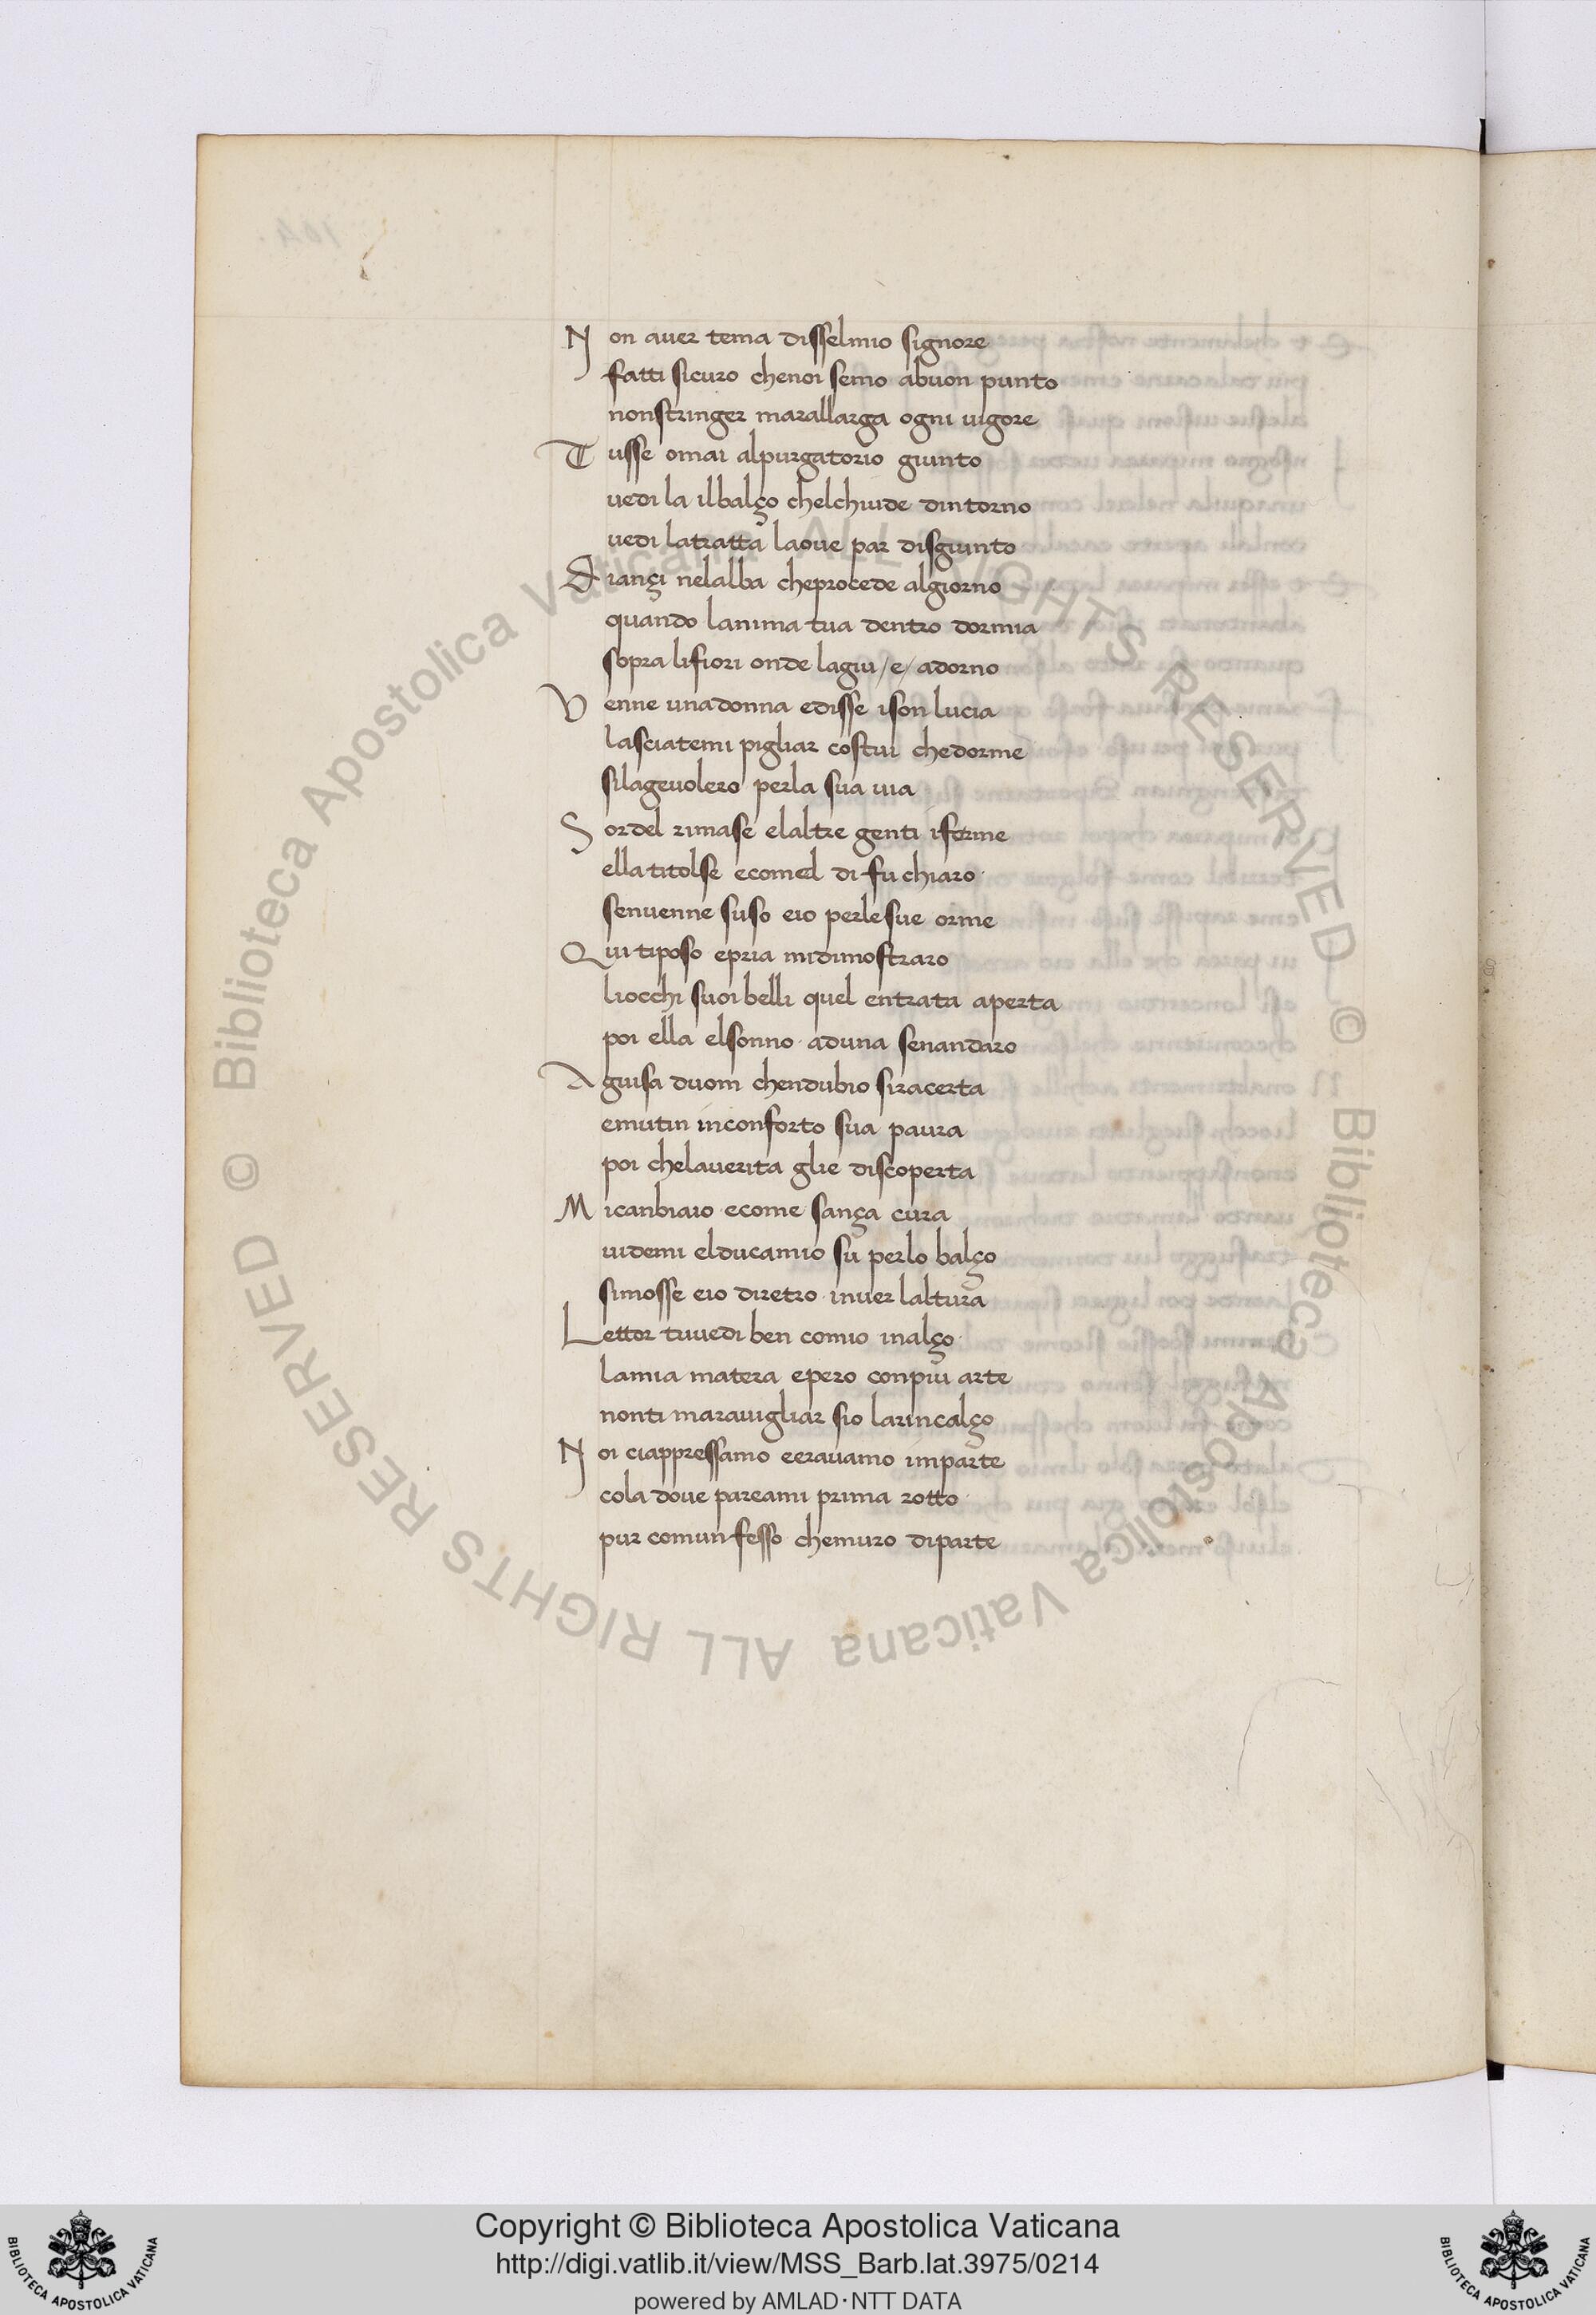 Non aver tema disselmio signore
fatti sicuro chenoi semo abuon punto
nonstringer marallarga ogni uigore
Tusse omai alpurgatorio giunto
uedi la ilbalço chelchiude dintorno
uedi latratta laoue par disgiunto
Diançi nelalba cheprocede algiorno
quando lanima tua dentro dormia
sopra lifiori onde lagiu /e/ adorno
Venne unadonna edisse ison lucia
lasciatemi pigliar costui chedorme
silageuolero perla sua uia
Sordel rimase elaltre genti iforme
ella titolse ecomel di fu chiaro
senuenne suso eio perlesue orme
Qui tiposo epria midimostraro
liocchi suoi belli quel entrata aperta
poi ella elsonno aduna senandaro
Aguisa duom chendubio siracerta
emutin inconforto sua paura
poi chelauerita glie discoperta
Micanbiaio ecome sança cura
uidemi elducamio su perlo balço
simosse eio diretro inuer laltura
Lettor tuuedi ben comio inalço
lamia matera epero conpiu arte
nonti marauigliar sio larincalço
Noi ciappressamo eerauamo imparte
cola doue pareami prima rotto
pur comun fesso chemuro diparte
© Biblioteca Apostolica Vaticana ALL RIGHTS RESERVED © Biblioteca Apostolica Vaticana ALL RIGHTS RESERVED
Copyright © Biblioteca Apostolica Vaticana
http://digi.vatlib.it/view/MSS_Barb.lat.3975/0214
powered by AMLAD·NTT DATA
BIBLIOTECA APOSTOLICA VATICANA
BIBLIOTECA APOSTOLICA VATICANA